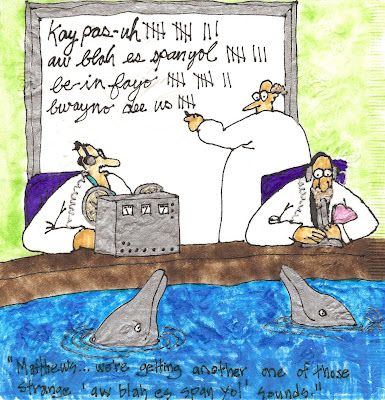 Kay pas-uh
aw blah es span yol
be-in fayo
bwayno dee us
"Matthews... we're getting another one of those
strange 'aw blah es span yol' sounds."